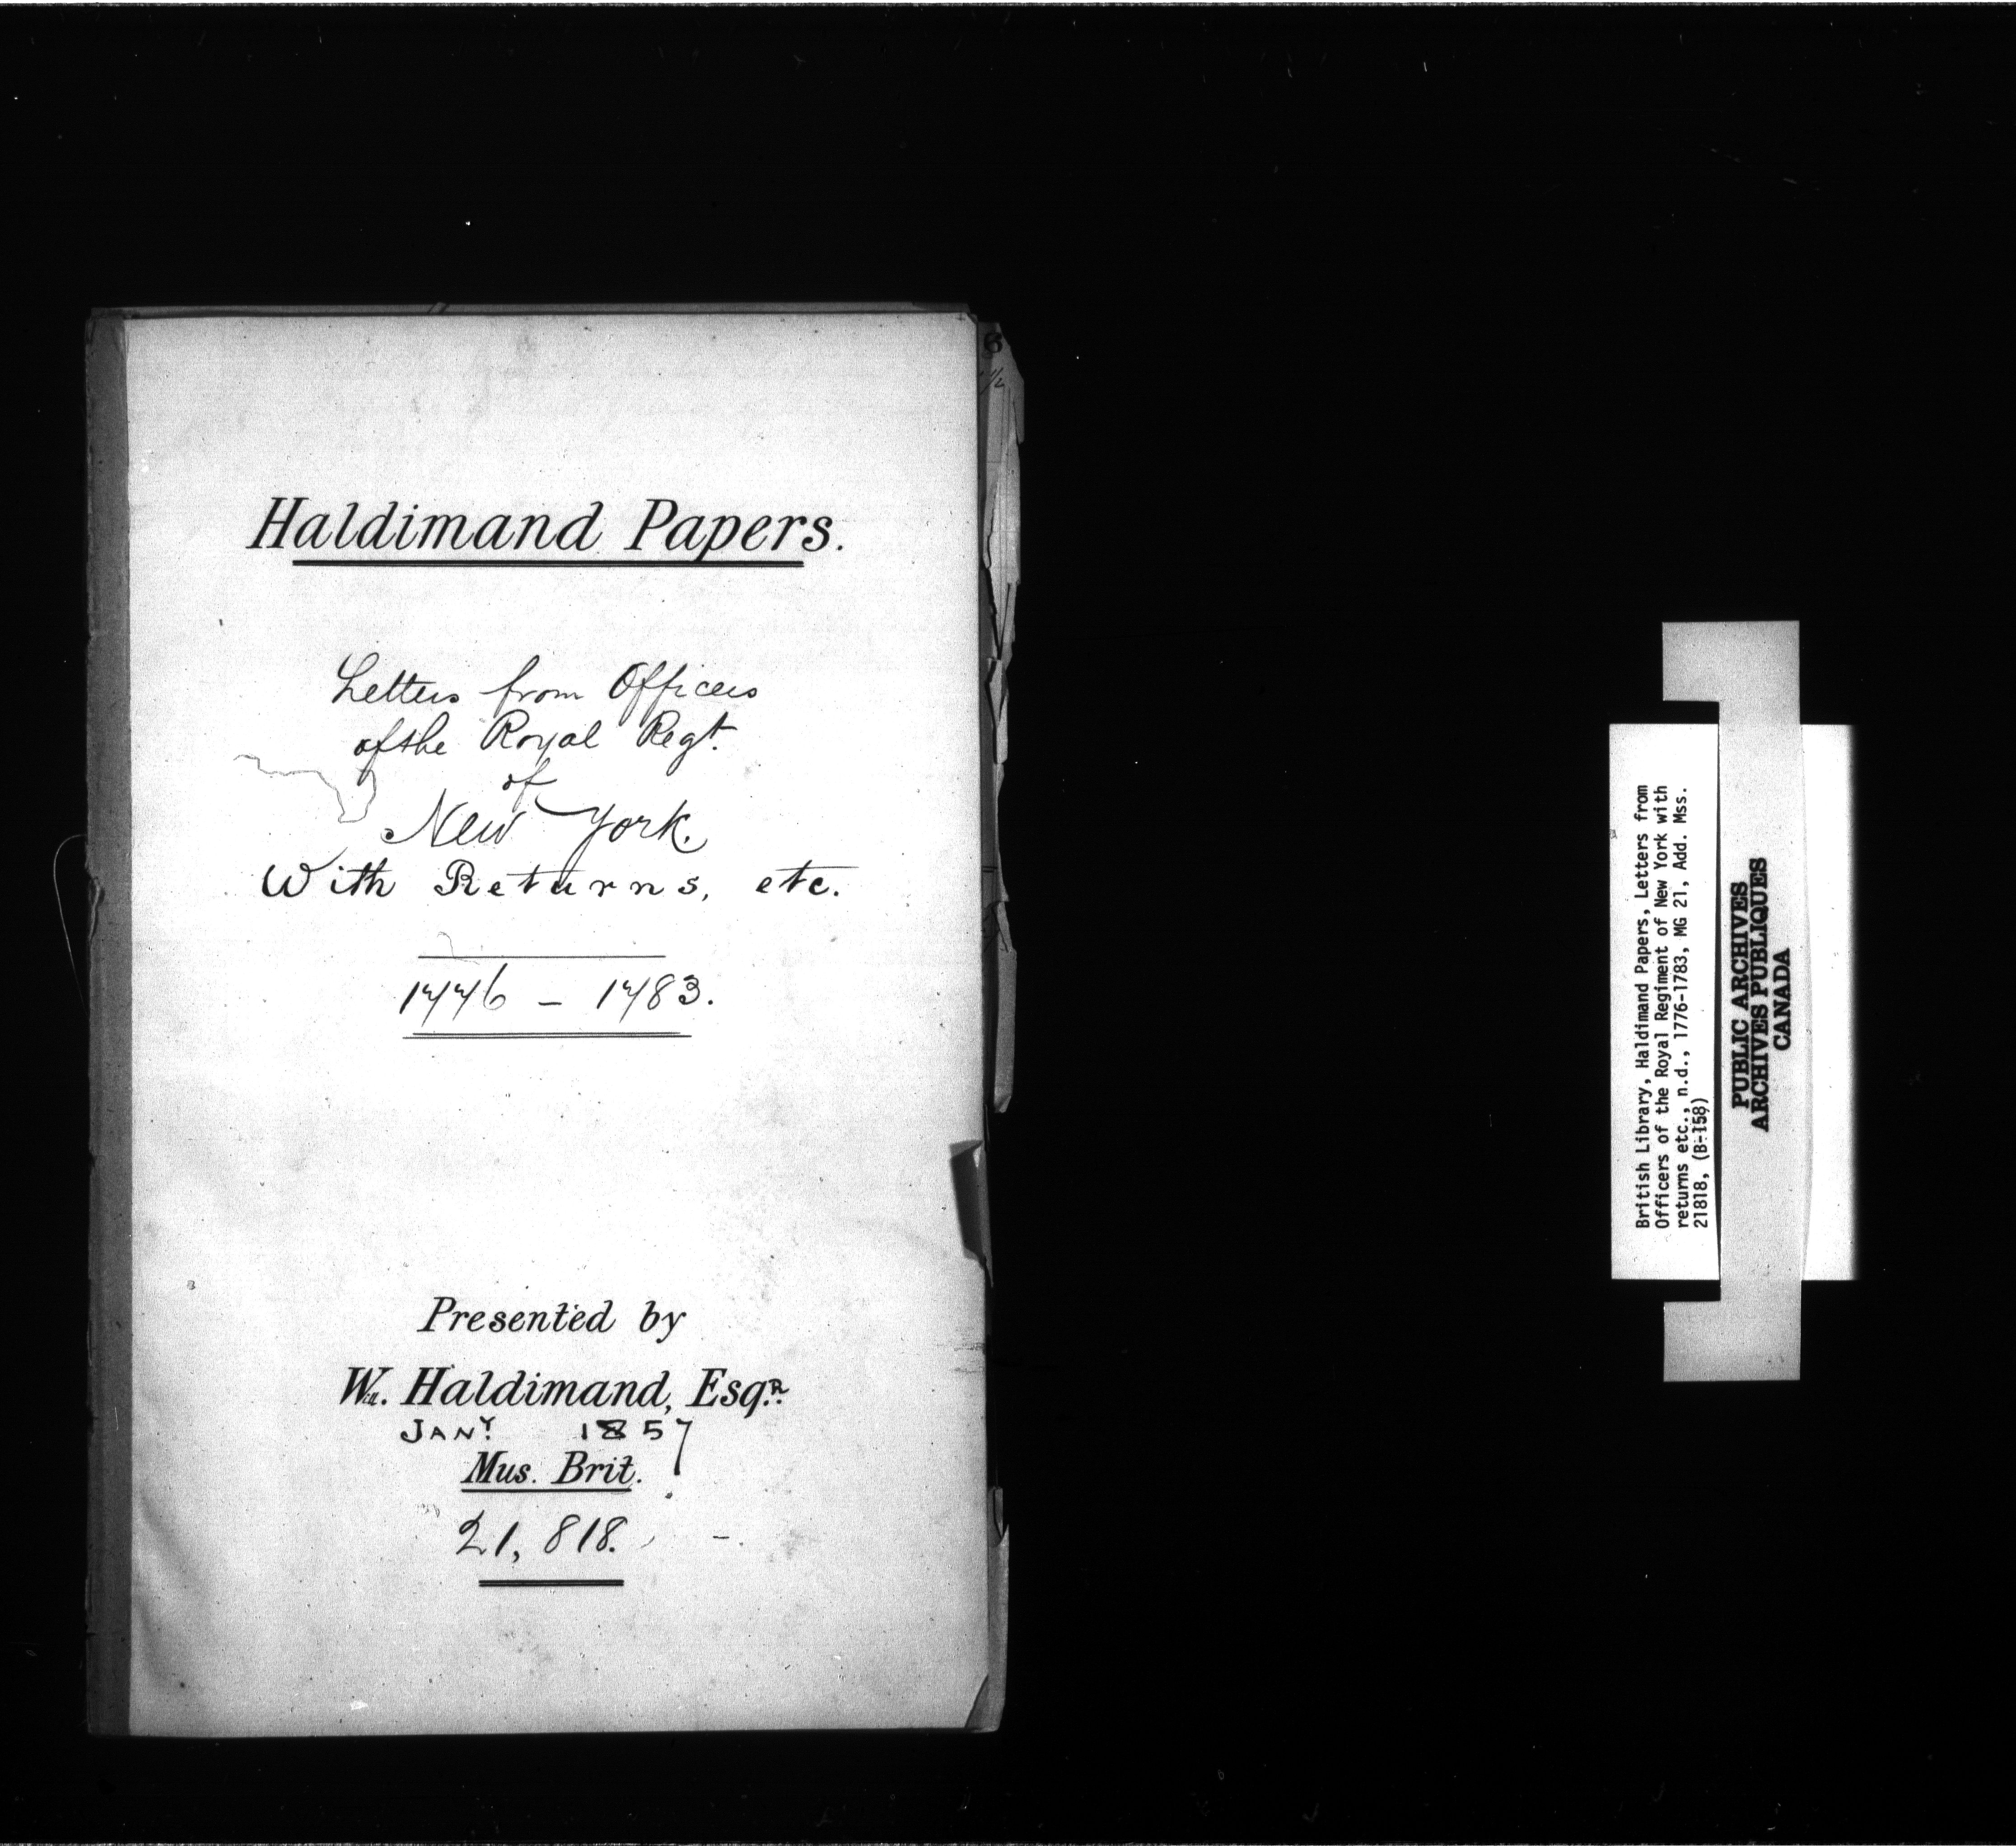 Haldimand Papers.
Letters from Officers
of the Royal Regt.
of
New York.
With Returns, etc.
1776 - 1783.
Presented by
Will. Haldimand, Esqr.
JANY 1857
Mus. Brit.
21,818.
6
British Library, Haldimand Papers, Letters from
Officers of the Royal Regiment of New York with
returns etc., n.d., 1776-1783, MG 21, Add. Mss.
21818, (B-158)
PUBLIC ARCHIVES
ARCHIVES PUBLIQUES
CANADA